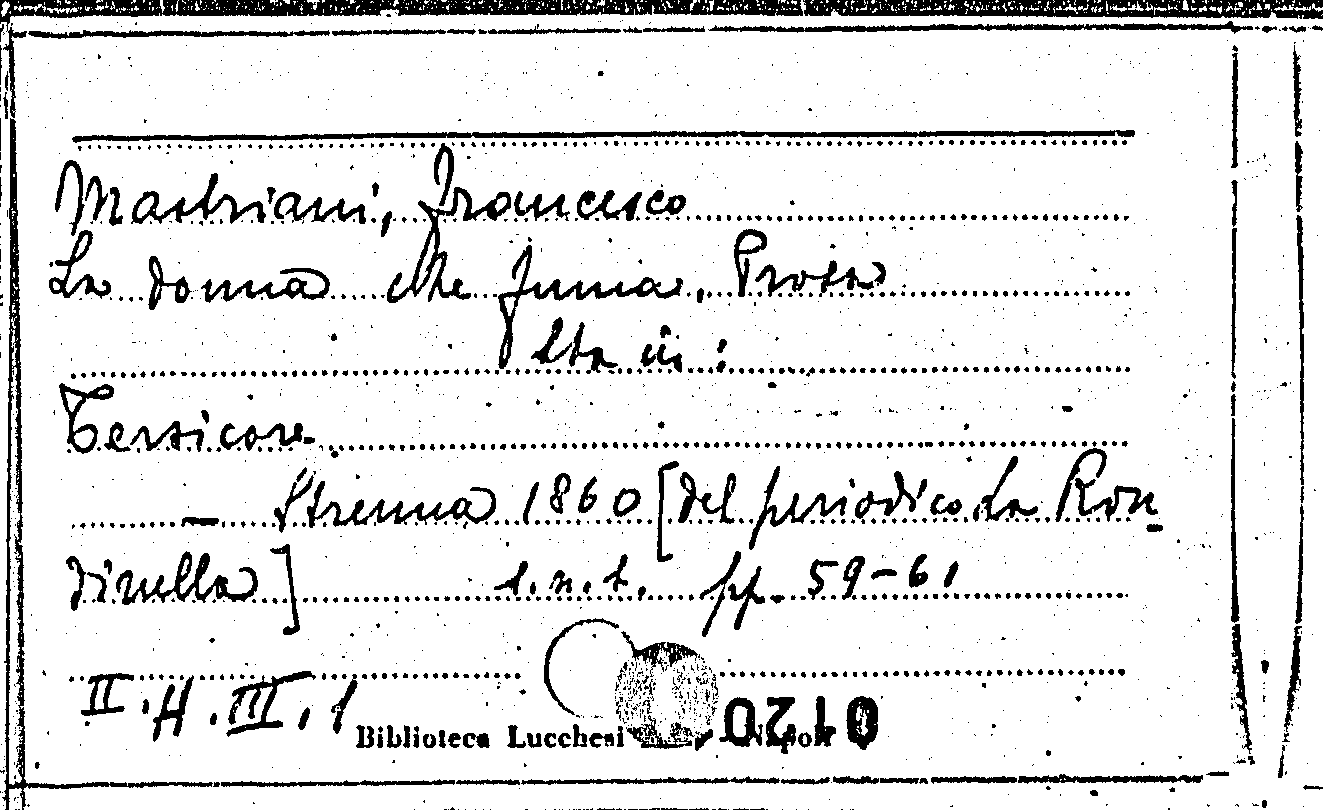 Mastriani, Francesco
La donna che fuma. Prosa
Sta in:
Tersicore
- Strenna 1860 [del periodico La Ron-
dinella] s.n.t. pp. 59-61
II.H.III.1
Biblioteca Lucchesi - Napoli
0120